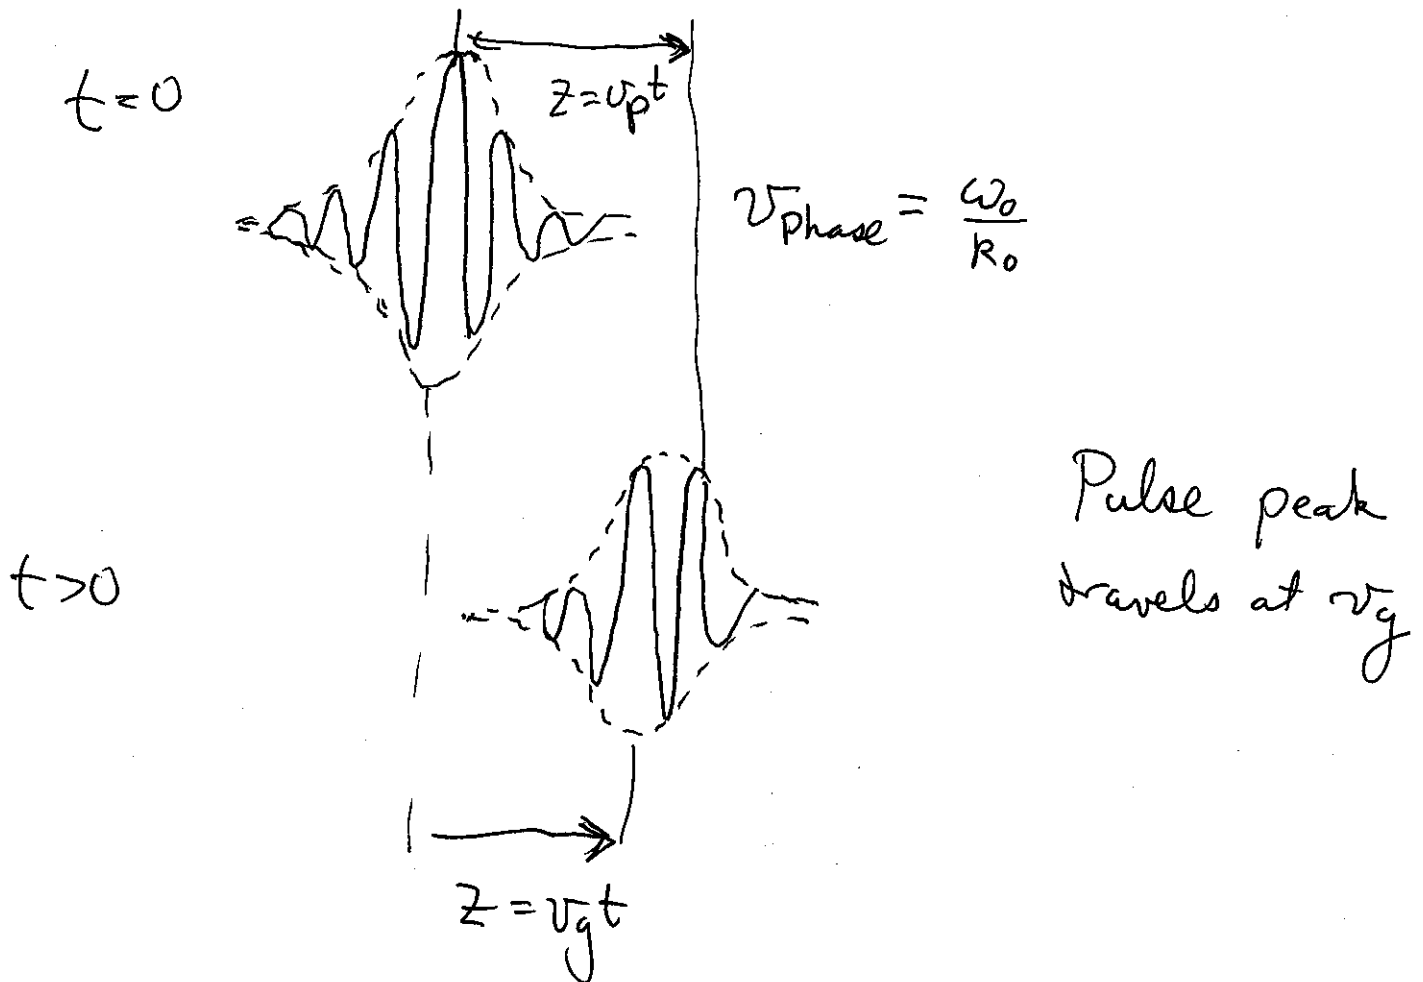 t=0
z=v_p t
v_phase = ω₀/k₀
Pulse peak
travels at v_g
t>0
z=v_g t